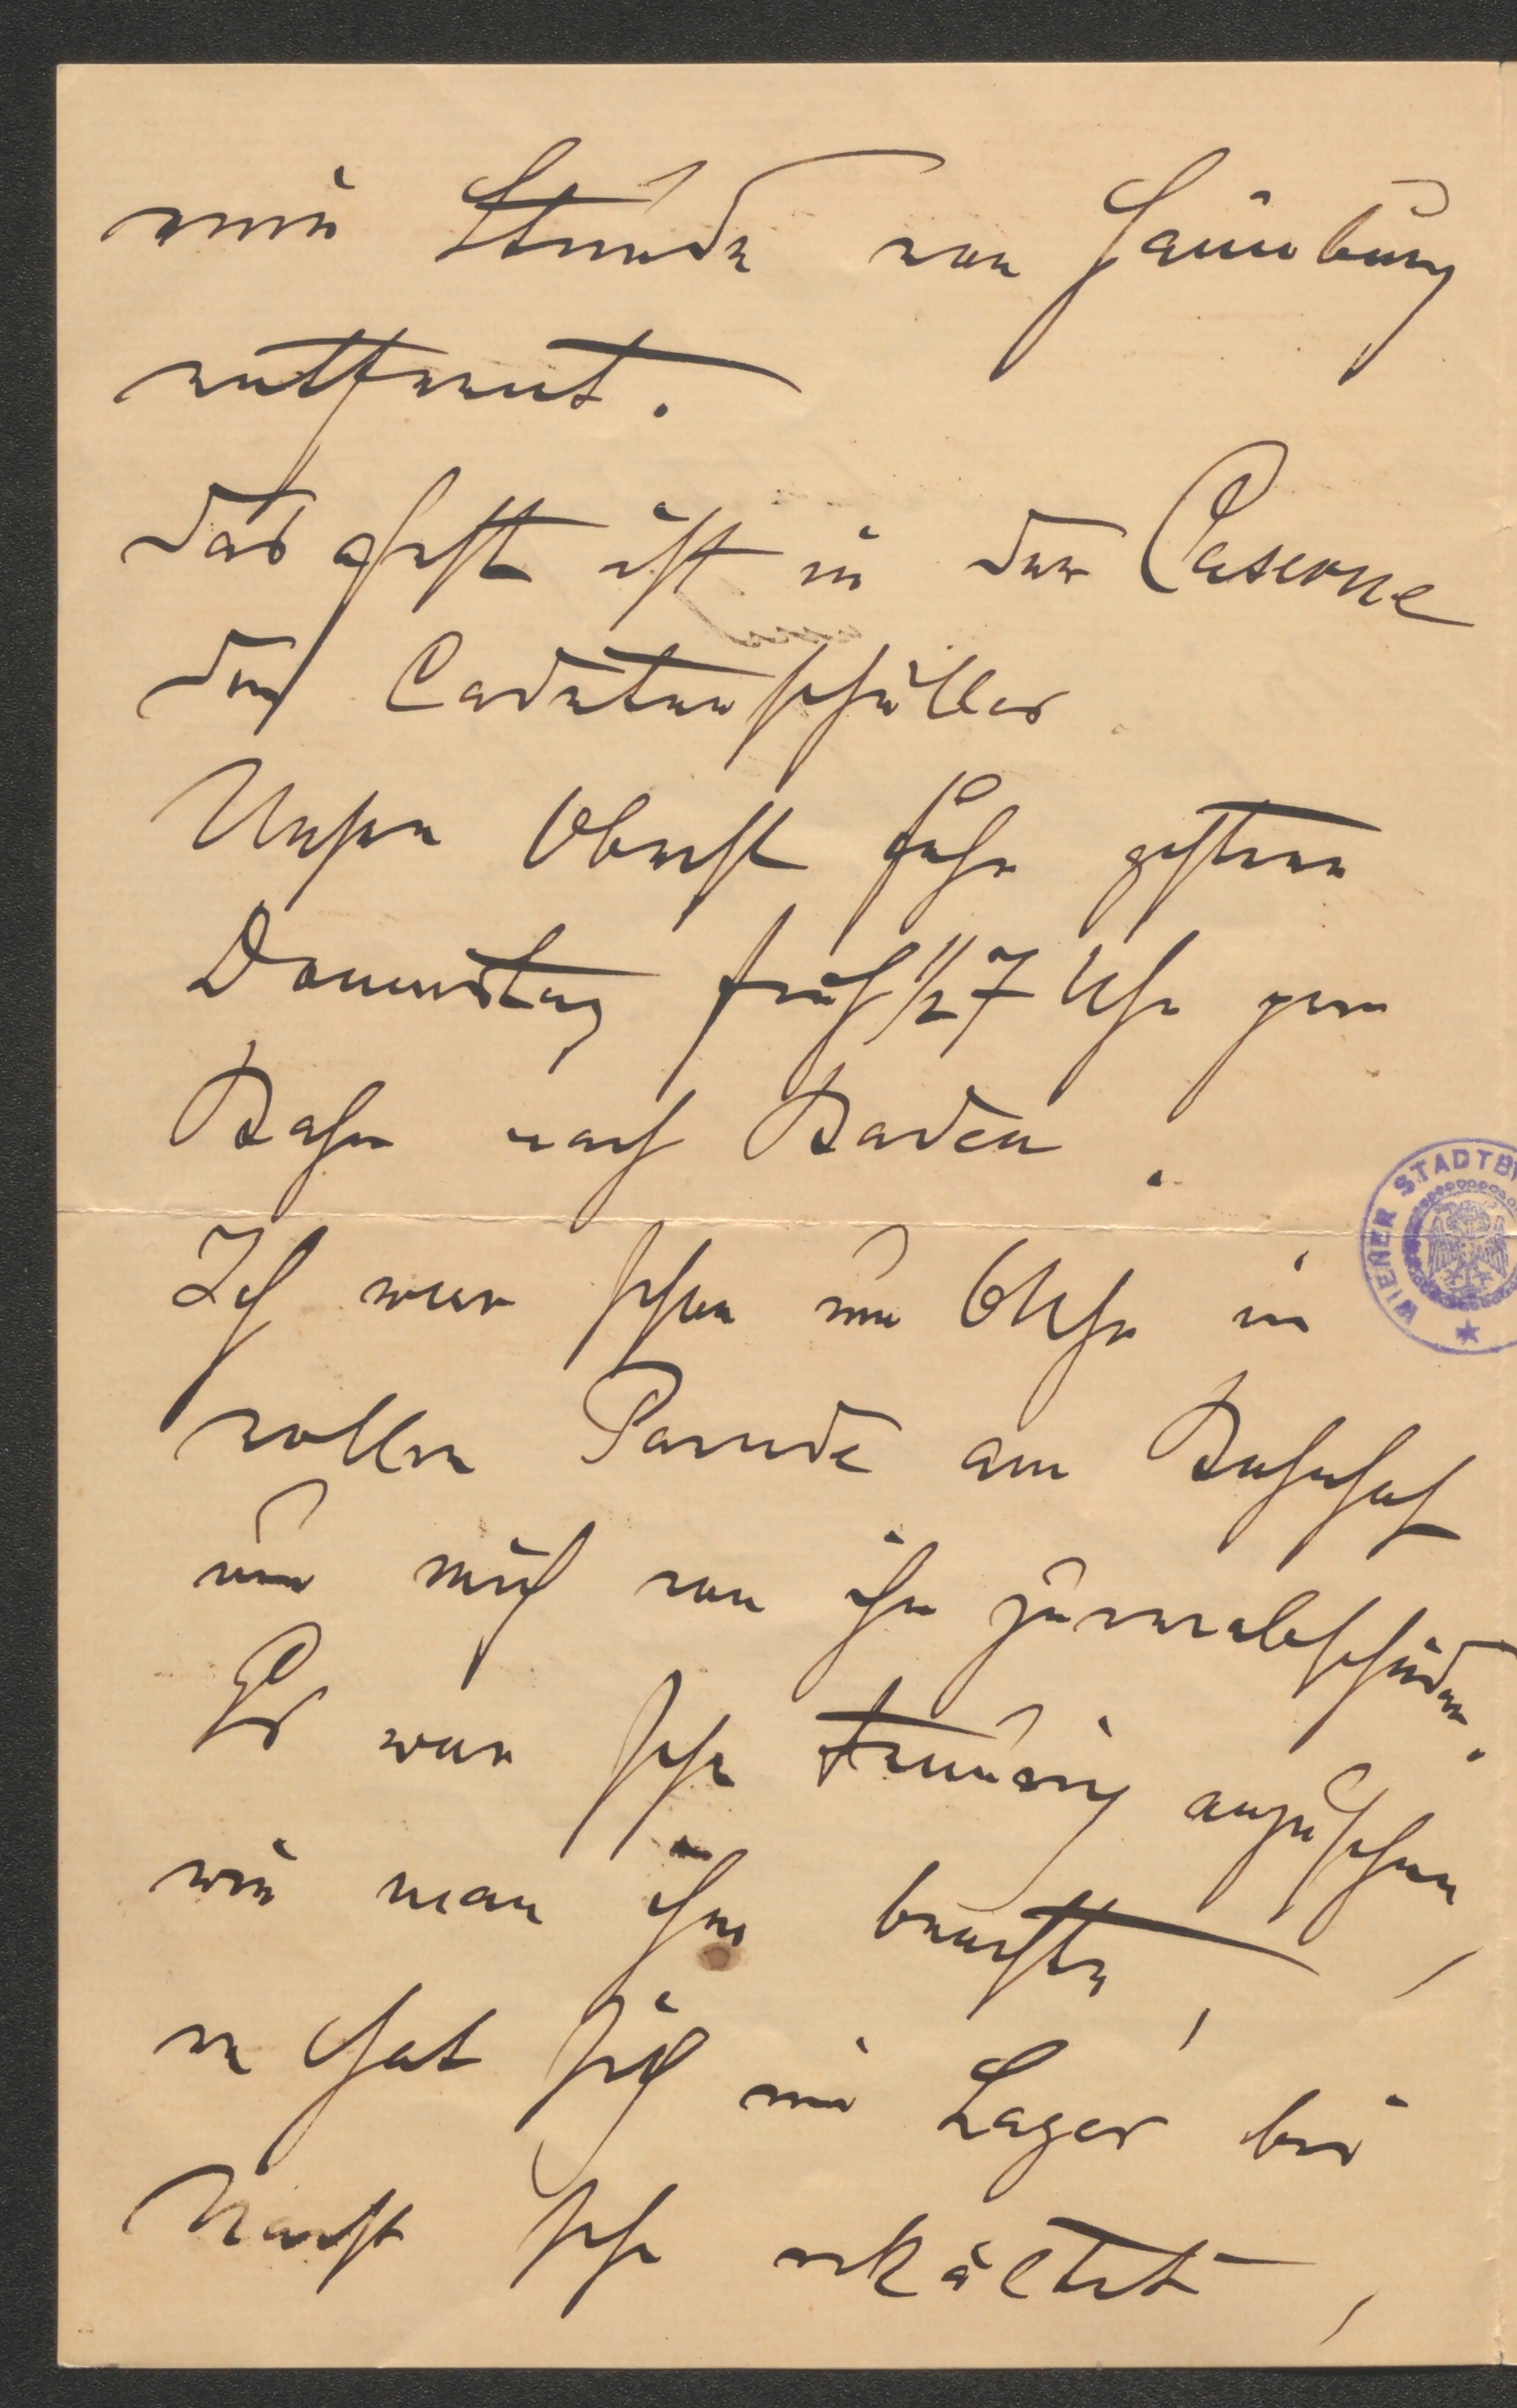 eine Stunde von Hainburg
entfernt.
Das Fest ist in der Caserne
der Cadetenschüller
Unser Oberst fuhr gestern
Donnerstag früh 1/2 7 Uhr per
Bahn nach Baden.
Ich war schon um 6 Uhr in
voller Parade am Bahnhof
um mich von ihm zu verabschieden.
Es war sehr traurig anzusehen,
wie man ihn brachte,
er hat sich im Lager bei
Nacht sehr erkältet,
WIENER STADTB